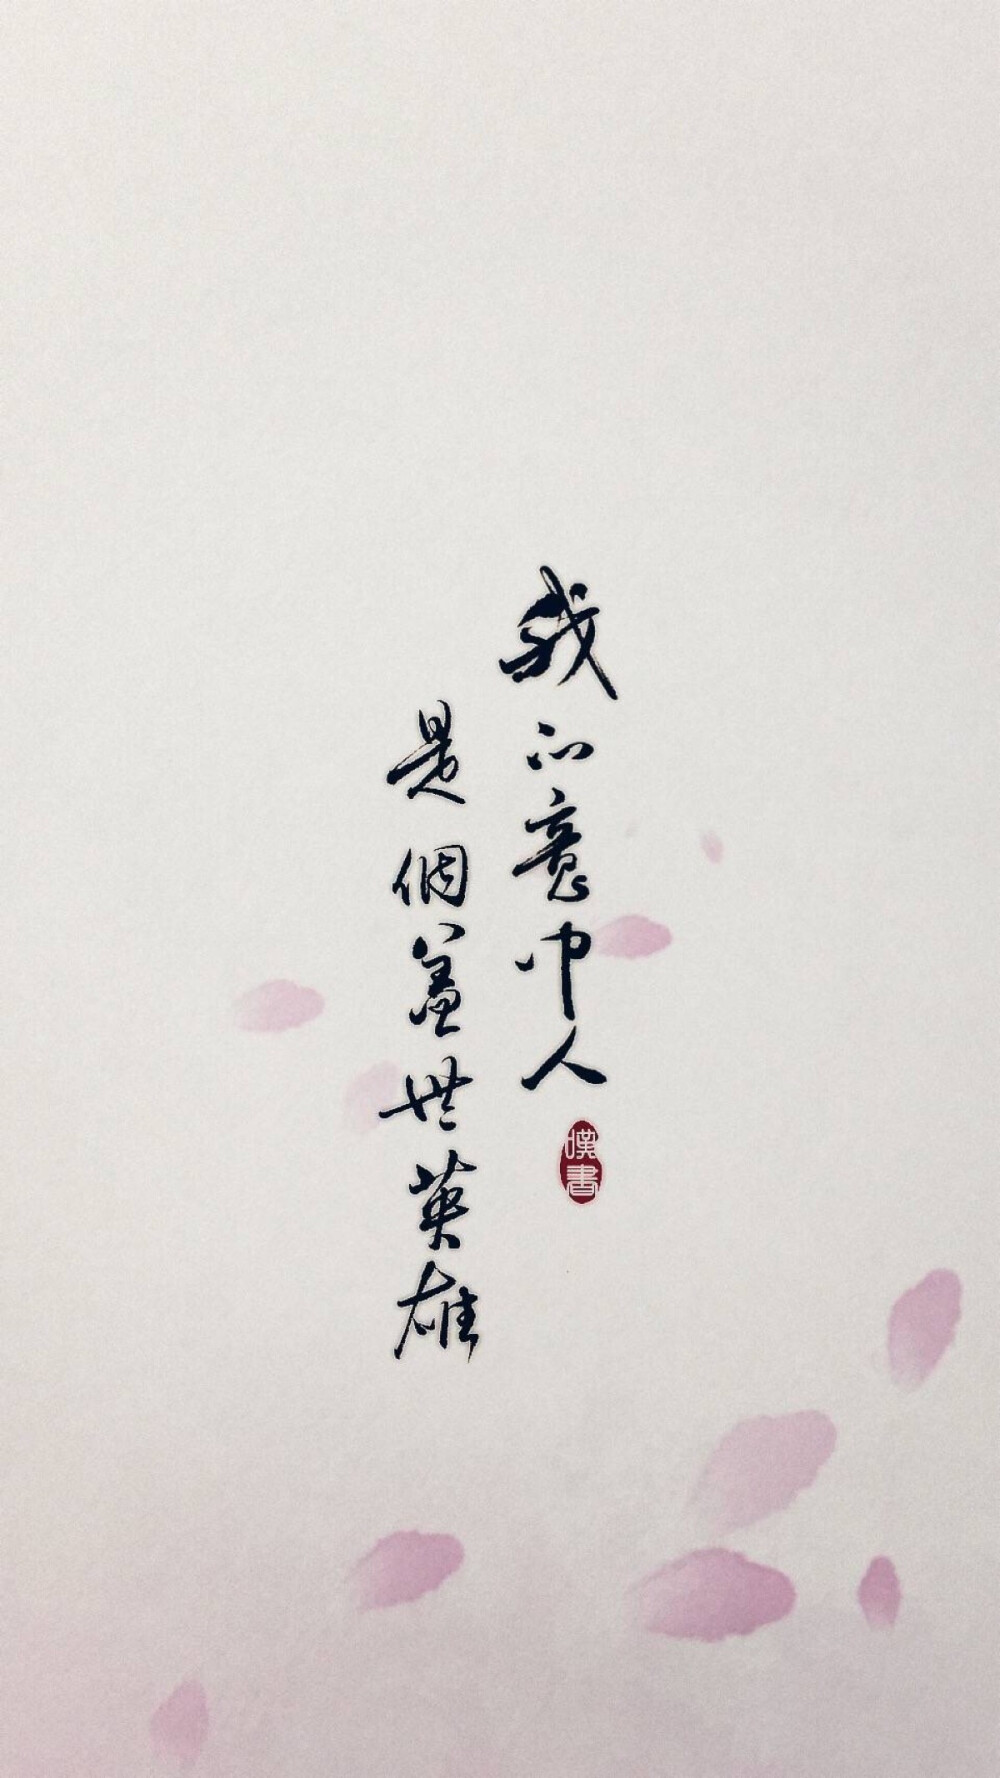 我的意中人
是個蓋世英雄
嘆書